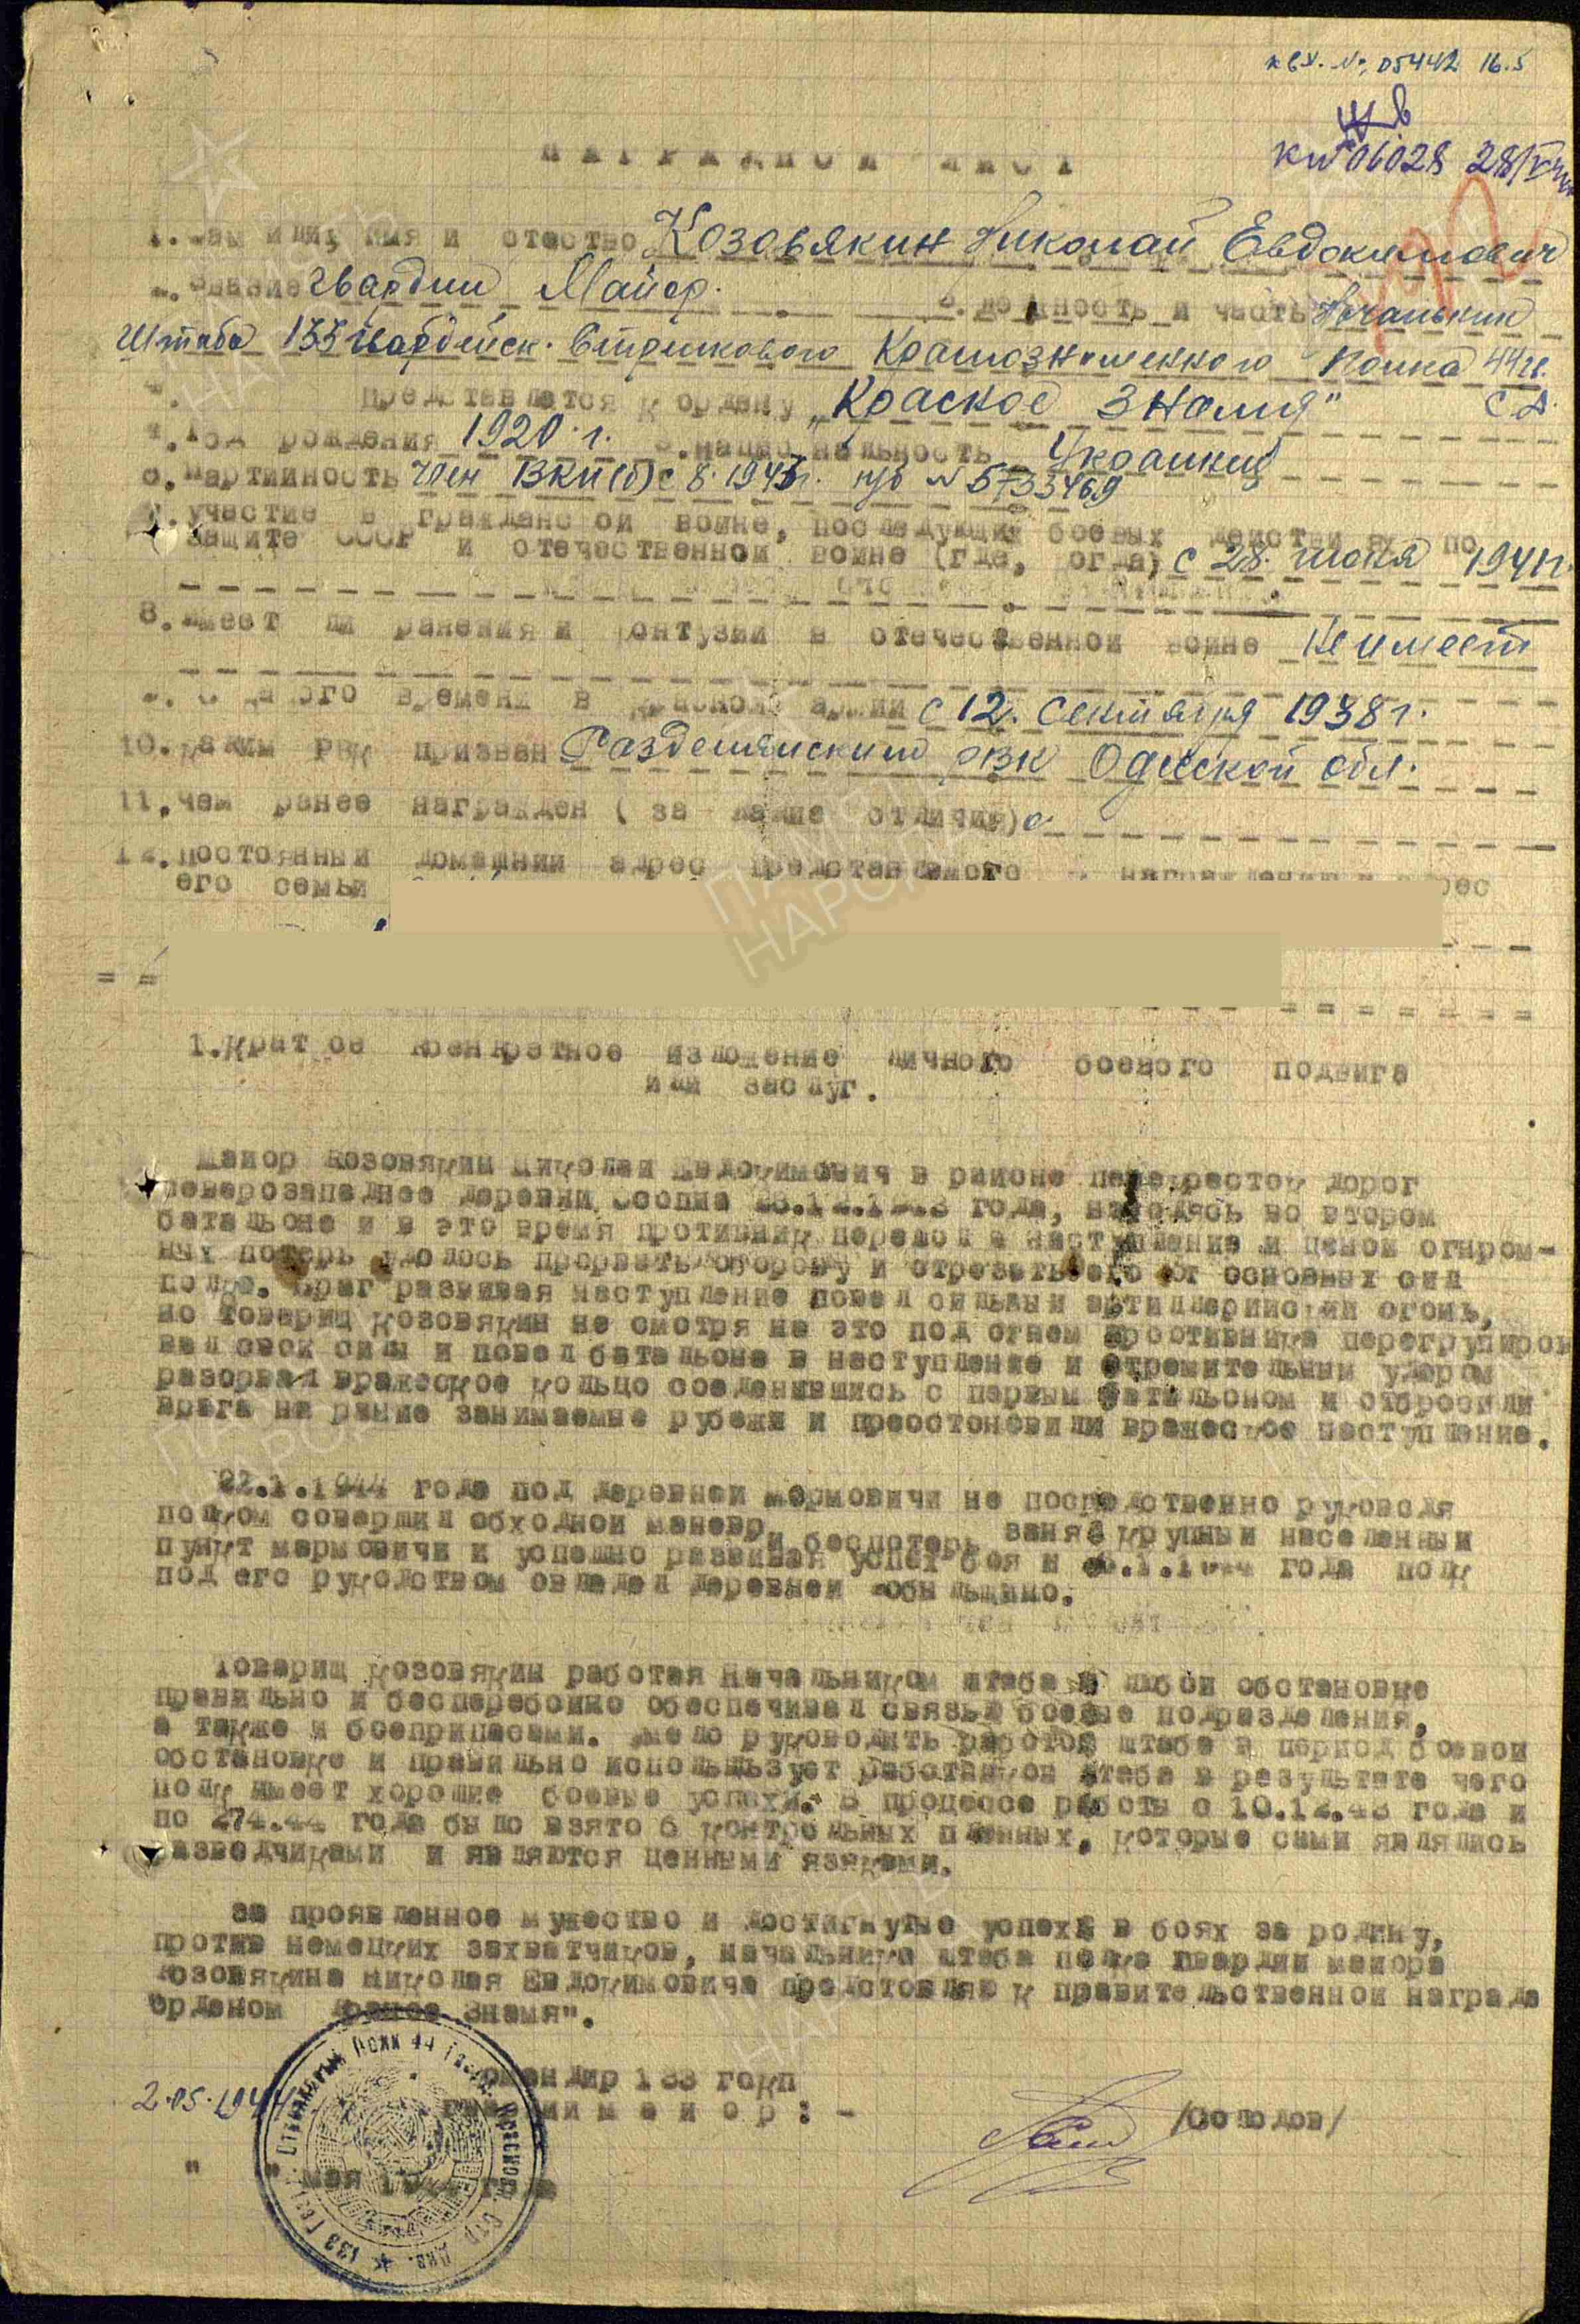 к вх. №. 05442 16.5
НАГРАДНОЙ ЛИСТ
1. Фамилия, имя и отчество Козовякин Николай Евдокимович
звание Гвардии Майор. 3. должность и часть Начальник
Штаба 133 Гвардейск. Стрелкового Краснознаменного Полка 44 гв.
с д.
Представляется к ордену „Красное Знамя"
4. Год рождения 1920 г. 5. национальность Украинец
6. Партийность член ВКП(б) с 8. 1943г. п/б № 5733469
7. участие в гражданской войне, последующих боевых действиях по
защите СССР и отечественной войне (где, когда) с 28. июня 1941г.
8. имеет ли ранения и контузии в отечественной войне Не имеет
9. С какого времени в Красной армии с 12. Сентября 1938 г.
10. каким РВК призван Раздельнянским РВК Одесской обл.
11. чем ранее награжден ( за какие отличия)
12. постоянный домашний адрес представляемого к награждению и адрес
его семьи
1. Краткое конкретное изложение личного боевого подвига
или заслуг.
Майор Козовякин Николай Евдокимович в районе перекресток дорог
северозападнее деревни года, находясь во втором
батальоне и в это время противник перешол в наступление и ценой огнром-
ных потерь удолось прорвать оборону и отрезать его от основных сил
полка. Враг развивая наступление повел сильный артиллерийский огонь,
но Товарищ Козовякин не смотря на это под огнем простивника перегрупиров
вал свок силы и повел батальона в наступление и стремительным ударом
разорвал вражеское кольцо соеденившись с первым батальоном и отбросили
врага на рание занимаемые рубежи и преостоновили вражеское наступление.
22.1.1944 года под деревней мормовичи не посредственно руководя
полком совершил обходной маневр и беспотерь занял крупный населенный
пункт мормовичи и успешно развивая успех боя и года полк
под его руколством овладел деревней
Товарищ Козовякин работая Начальником штаба в любой обстановке
правильно и бесперебойно обеспечивал связью боевые подразделения,
а также и боеприпасами. умело руководить работой штаба в период боевой
обстановке и правильно использьзует работников штаба в результате чего
полк имеет хорошие боевые успехи. В процессе работы с 10.12.43 года и
по 274.44 года было взято 6 контрольных пленных, которые сами являлись
разведчиками и являются ценными язяками.
за проявленное мужество и достигнутые успехи в боях за родину,
против немецких захватчиков, начальника штаба полка гвардии майора
Козовякина Николая Евдокимовича предстовляю к правительственной награде
орденом Знамя".
Командир 133 гскп
гвардии м а й о р : -
/Солодов/
2.05.1944
" " мая 1944 года